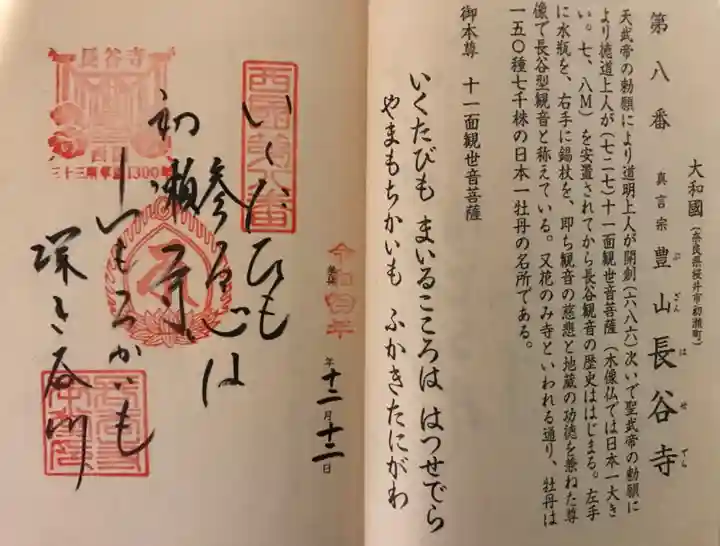 第八番
大和國(奈良県桜井市初瀬町)
真言宗 豊山長谷寺
ぶざん はせでら
天武帝の勅願により道明上人が開創(六八六)次いで聖武帝の勅願に
より徳道上人が(七二七)十一面観世音菩薩(木像仏では日本一大き
い。七、八M)を安置されてから長谷観音の歴史ははじまる。左手
に水瓶を、右手に錫杖を、即ち観音の慈悲と地蔵の功徳を兼ねた尊
像で長谷型観音と称えている。又花のみ寺といわれる通り、牡丹は
一五〇種七千株の日本一牡丹の名所である。
御本尊 十一面観世音菩薩
いくたびも まいるこころは はつせでら
やまもちかいも ふかきたにがわ
令和四年
年十二月十二日
西国第八番
いくたひも
参る心は
初瀬寺
山もちかいも
深き谷川
長谷寺
西国
三十三所草創1300年